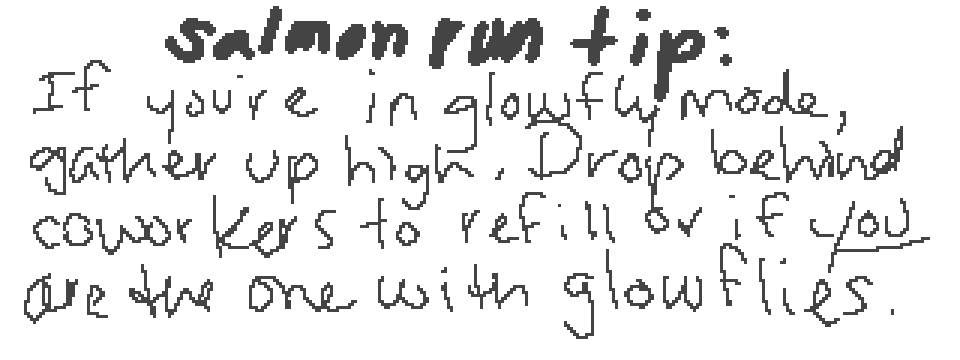 salmon run tip:
If you're in glowfly mode,
gather up high. Drop behind
coworkers to refill or if you
are the one with glowflies.